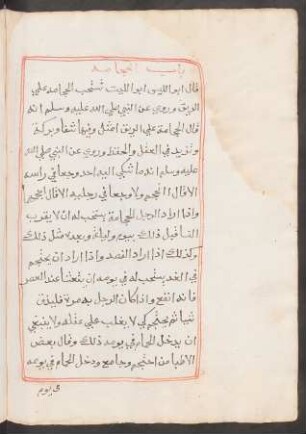 باب الحجامة
قال ابو الليث ابو الليث تستحب الحجامة علي
الريق وروي عن النبي صلي الله عليه وسلم انه
قال الحجامة علي الريق امثل وفيها شفا وبركة
وتزيد في العقل والحفظ وروي عن النبي صلي الله
عليه وسلم انه ما شكي اليه احد وجعا في راسه
الا قال احتجم ولا وجعا في رجليه الا قال
واذا اراد الرجل الحجامة يستحب له ان لا يقرب
النسا قبل ذلك بيوم وليلة وبعده مثل ذلك
وكذلك اذا اراد الفصد واذا اراد ان يحتجم
في الغد يستحب له في يومه ان يتعشا عند العصر
فانه انفع واذا كان الرجل به مرة فليذق
شيا ثم يحتجم كي لا يغلب علي عقله ولا ينبغي
ان يدخل الحمام في يومه ذلك وقال بعض
الاطبا من احتجم وجامع ودخل الحمام في يومه
في يوم